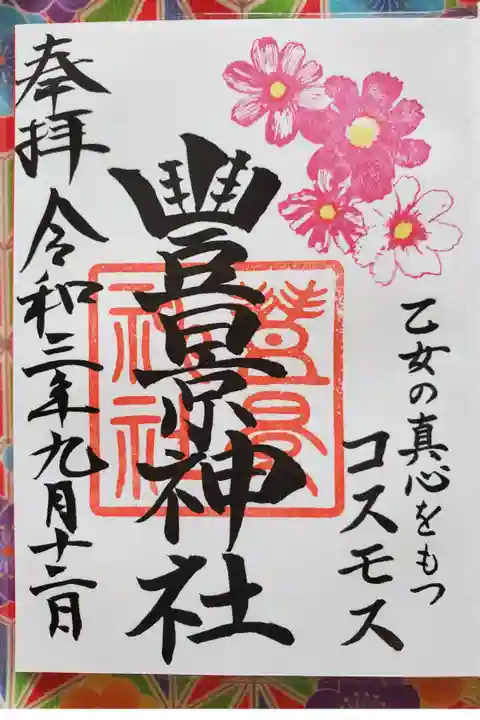 乙女の真心をもつ
コスモス
豐景神社
奉拝
令和三年九月十二日
豐景
神社